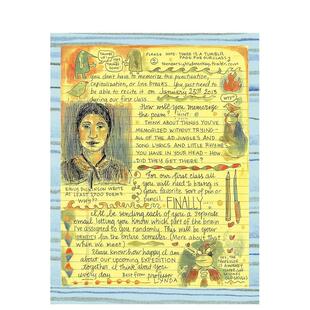 PLEASE NOTE: THERE IS A TUMBLR
PAGE FOR OUR CLASS:
you don't have to memorize the punctuation,
Capitalization, or line breaks. You just need to
be able to recite it on January 25th 2013
during our first class.
How will you memorize
the poem? HINT
THINK ABOUT THINGS YOU'VE
MEMORIZED WITHOUT TRYING—
ALL OF THE AD JINGLES AND
SONG LYRICS AND LITTLE RHYMES
YOU HAVE IN YOUR HEAD - HOW
DID THEY GET THERE?
EMILY DICKINSON WROTE
AT LEAST 1700 POEMS
WHY?
For our first class all
you will need to bring is
your favorite sort of pen or
pencil.
FINALLY
I'll be sending each of you a separate
email letting you know which part of the brain
I've assigned to you randomly. This will be your
identity for the entire Semester. (More about that
when we meet)
Please know how happy I am
about our upcoming EXPEDITION
together. I think about you
every day.
Best from Professor
LYNDA
YES, THE
PROFESSOR
IS A